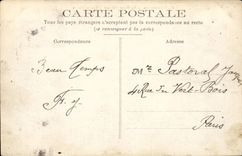 CARTE POSTALE
Tous les pays étrangers n'acceptent pas la correspondance au recto
(se renseigner à la poste)
Correspondance
Adresse
Beau temps
F. y.
Mlle Pastoral
4 Rue du Vert-Bois
Paris